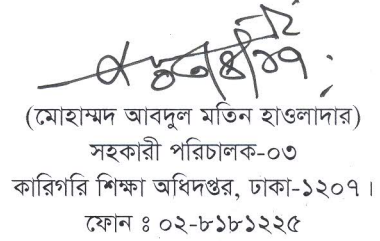 (মোহাম্মদ আবদুল মতিন হাওলাদার)
সহকারী পরিচালক-০৩
কারিগরি শিক্ষা অধিদপ্তর, ঢাকা-১২০৭।
ফোন ঃ ০২-৮১৮১২২৫